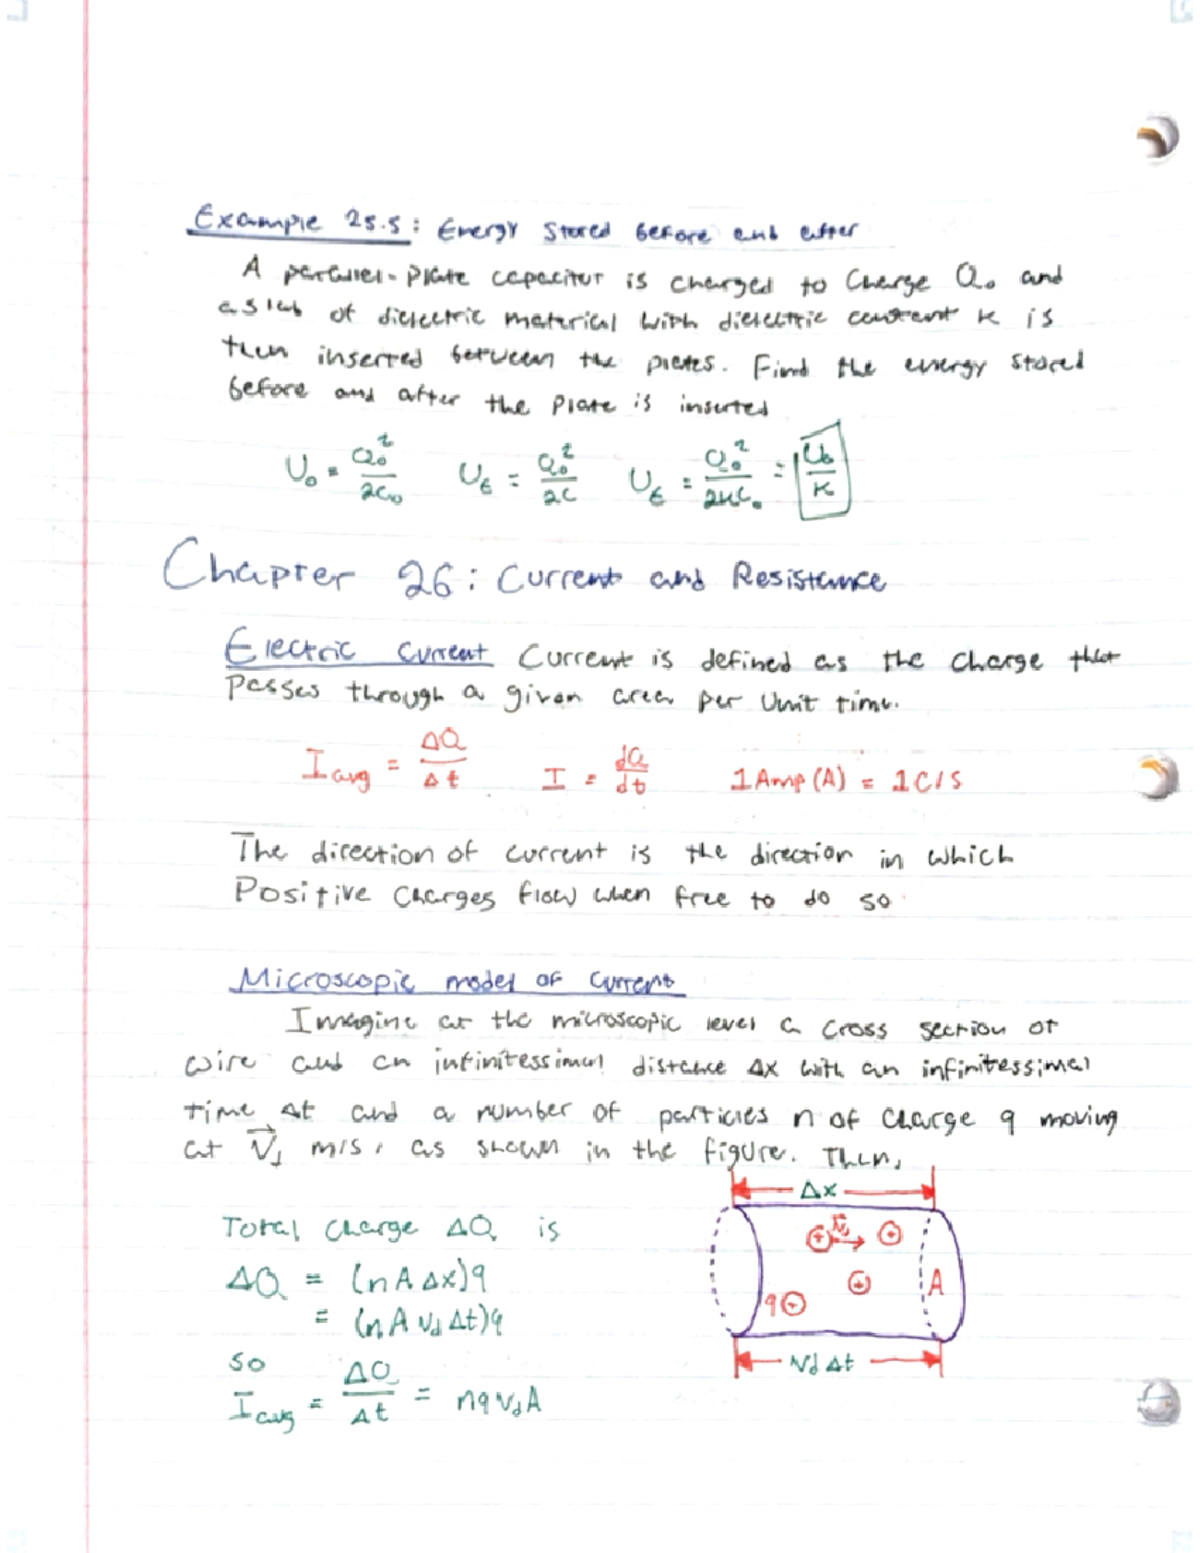 Example 25.5: Energy Stored before and after
A parallel-plate capacitor is charged to charge Q₀ and
a slab of dielectric material with dielectric constant κ is
then inserted between the plates. Find the energy stored
before and after the plate is inserted
U₀ = Q₀²/2C₀ U_f = Q₀²/2C U_f = Q₀²/2κC₀ = U₀/κ
Chapter 26: Current and Resistance
Electric Current Current is defined as the charge that
passes through a given area per unit time.
I avg = ΔQ/Δt I = dQ/dt 1 Amp (A) = 1 C/S
The direction of current is the direction in which
Positive charges flow when free to do so
Microscopic model of Current
Imagine at the microscopic level a cross section of
wire and an infinitessimal distance Δx with an infinitessimal
time Δt and a number of particles n of charge q moving
at V⃗d m/s, as shown in the figure. Then,
Δx
Total charge ΔQ is
ΔQ = (nAΔx)q
= (nA vd Δt)q
q
A
vd Δt
so
I avg = ΔQ/Δt = nqvdA